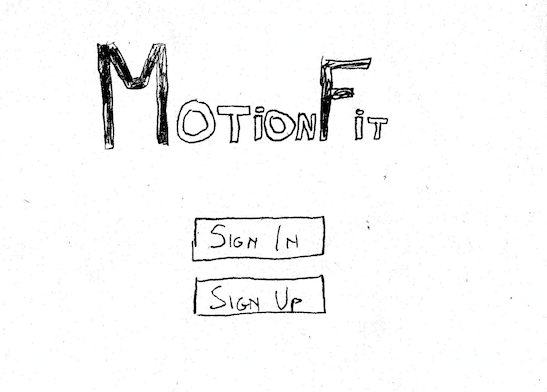 MOTiON FiT
SIGN IN
SIGN UP